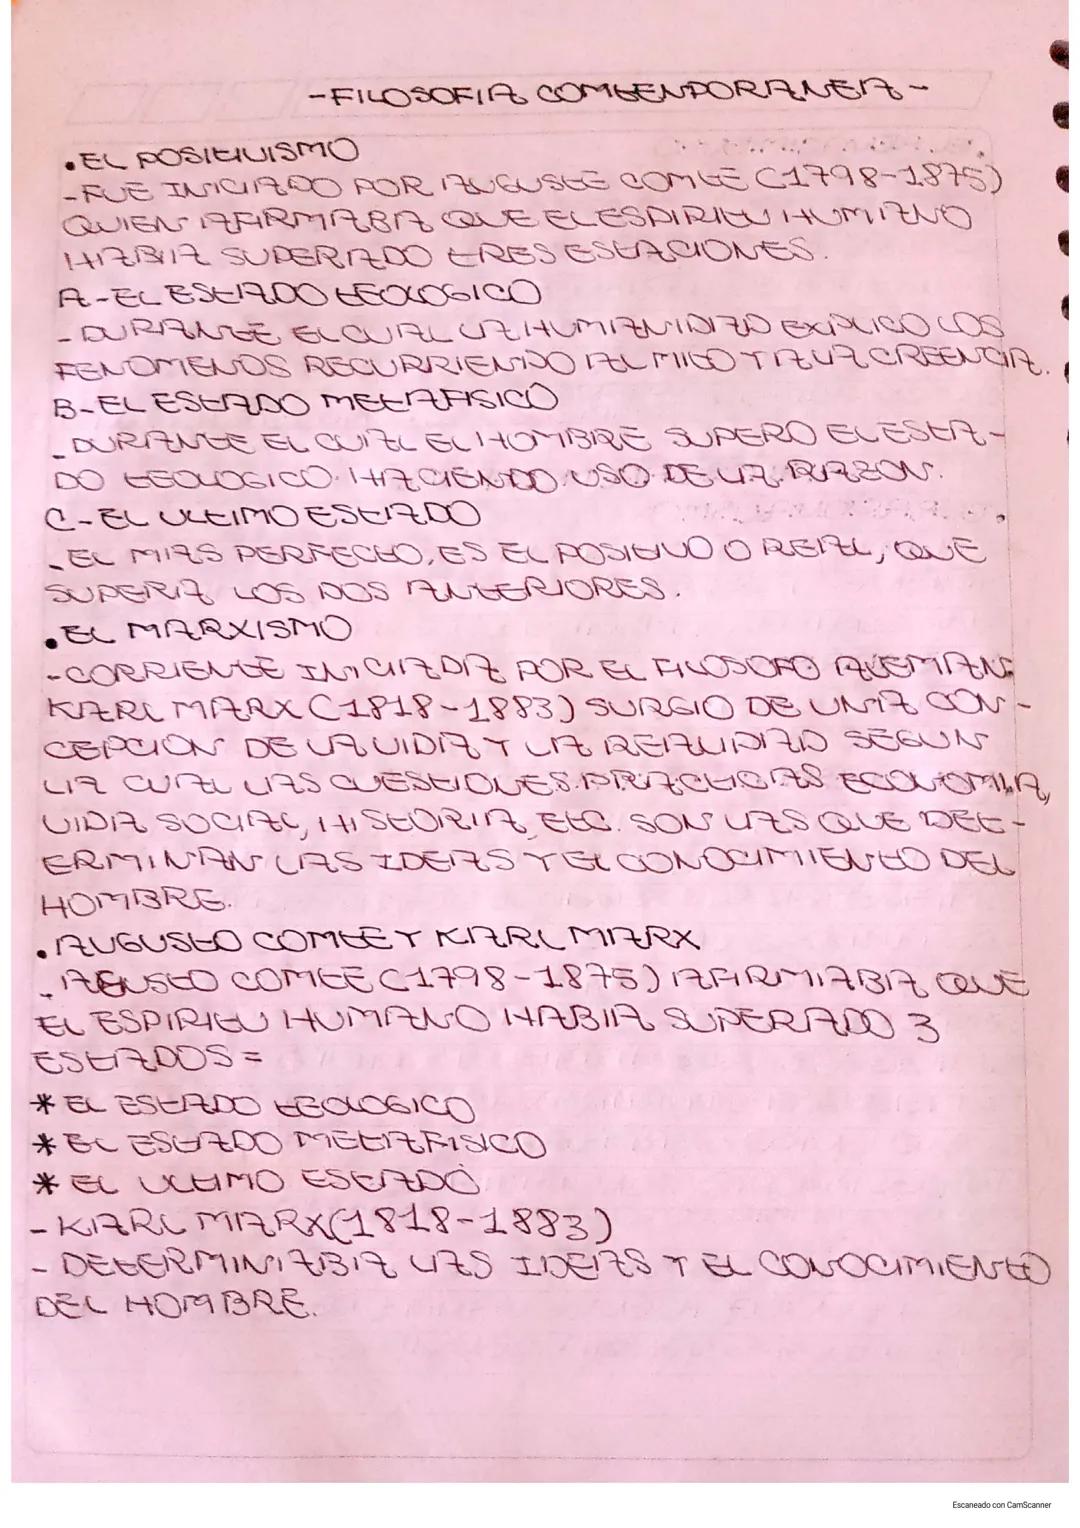 -FILOSOFIA COMTENPORANEA-
•EL POSITIVISMO
-FUE INICIADO POR AUGUSTE COMTE (1798-1875)
QUIEN AFIRMABA QUE EL ESPIRITU HUMANO
HABIA SUPERADO TRES ESTACIONES.
A-EL ESTADO TEOLOGICO
-DURANTE EL CUAL LA HUMANIDAD EXPLICO LOS
FENOMENOS RECURRIENDO AL MITO Y A LA CREENCIA.
B-EL ESTADO METAFISICO
-DURANTE EL CUAL EL HOMBRE SUPERO EL ESTA-
DO TEOLOGICO. HACIENDO USO DE LA RAZON.
C-EL ULTIMO ESTADO
-EL MAS PERFECTO, ES EL POSITIVO O REAL, QUE
SUPERA LOS DOS ANTERIORES.
•EL MARXISMO
-CORRIENTE INICIADA POR EL FILOSOFO ALEMAN
KARL MARX (1818-1883) SURGIO DE UNA CON-
CEPCION DE LA VIDA Y LA REALIDAD SEGUN
LA CUAL LAS CUESTIONES PRACTICAS ECONOMIA,
VIDA SOCIAL, HISTORIA, ETC. SON LAS QUE DET-
ERMINAN LAS IDEAS Y EL CONOCIMIENTO DEL
HOMBRE.
•AUGUSTO COMTE Y KARL MARX
-AGUSTO COMTE (1798-1875) AFIRMABA QUE
EL ESPIRITU HUMANO HABIA SUPERADO 3
ESTADOS =
* EL ESTADO TEOLOGICO
* EL ESTADO METAFISICO
* EL ULTIMO ESTADO
-KARL MARX (1818-1883)
- DETERMINABA LAS IDEAS Y EL CONOCIMIENTO
DEL HOMBRE.
Escaneado con CamScanner